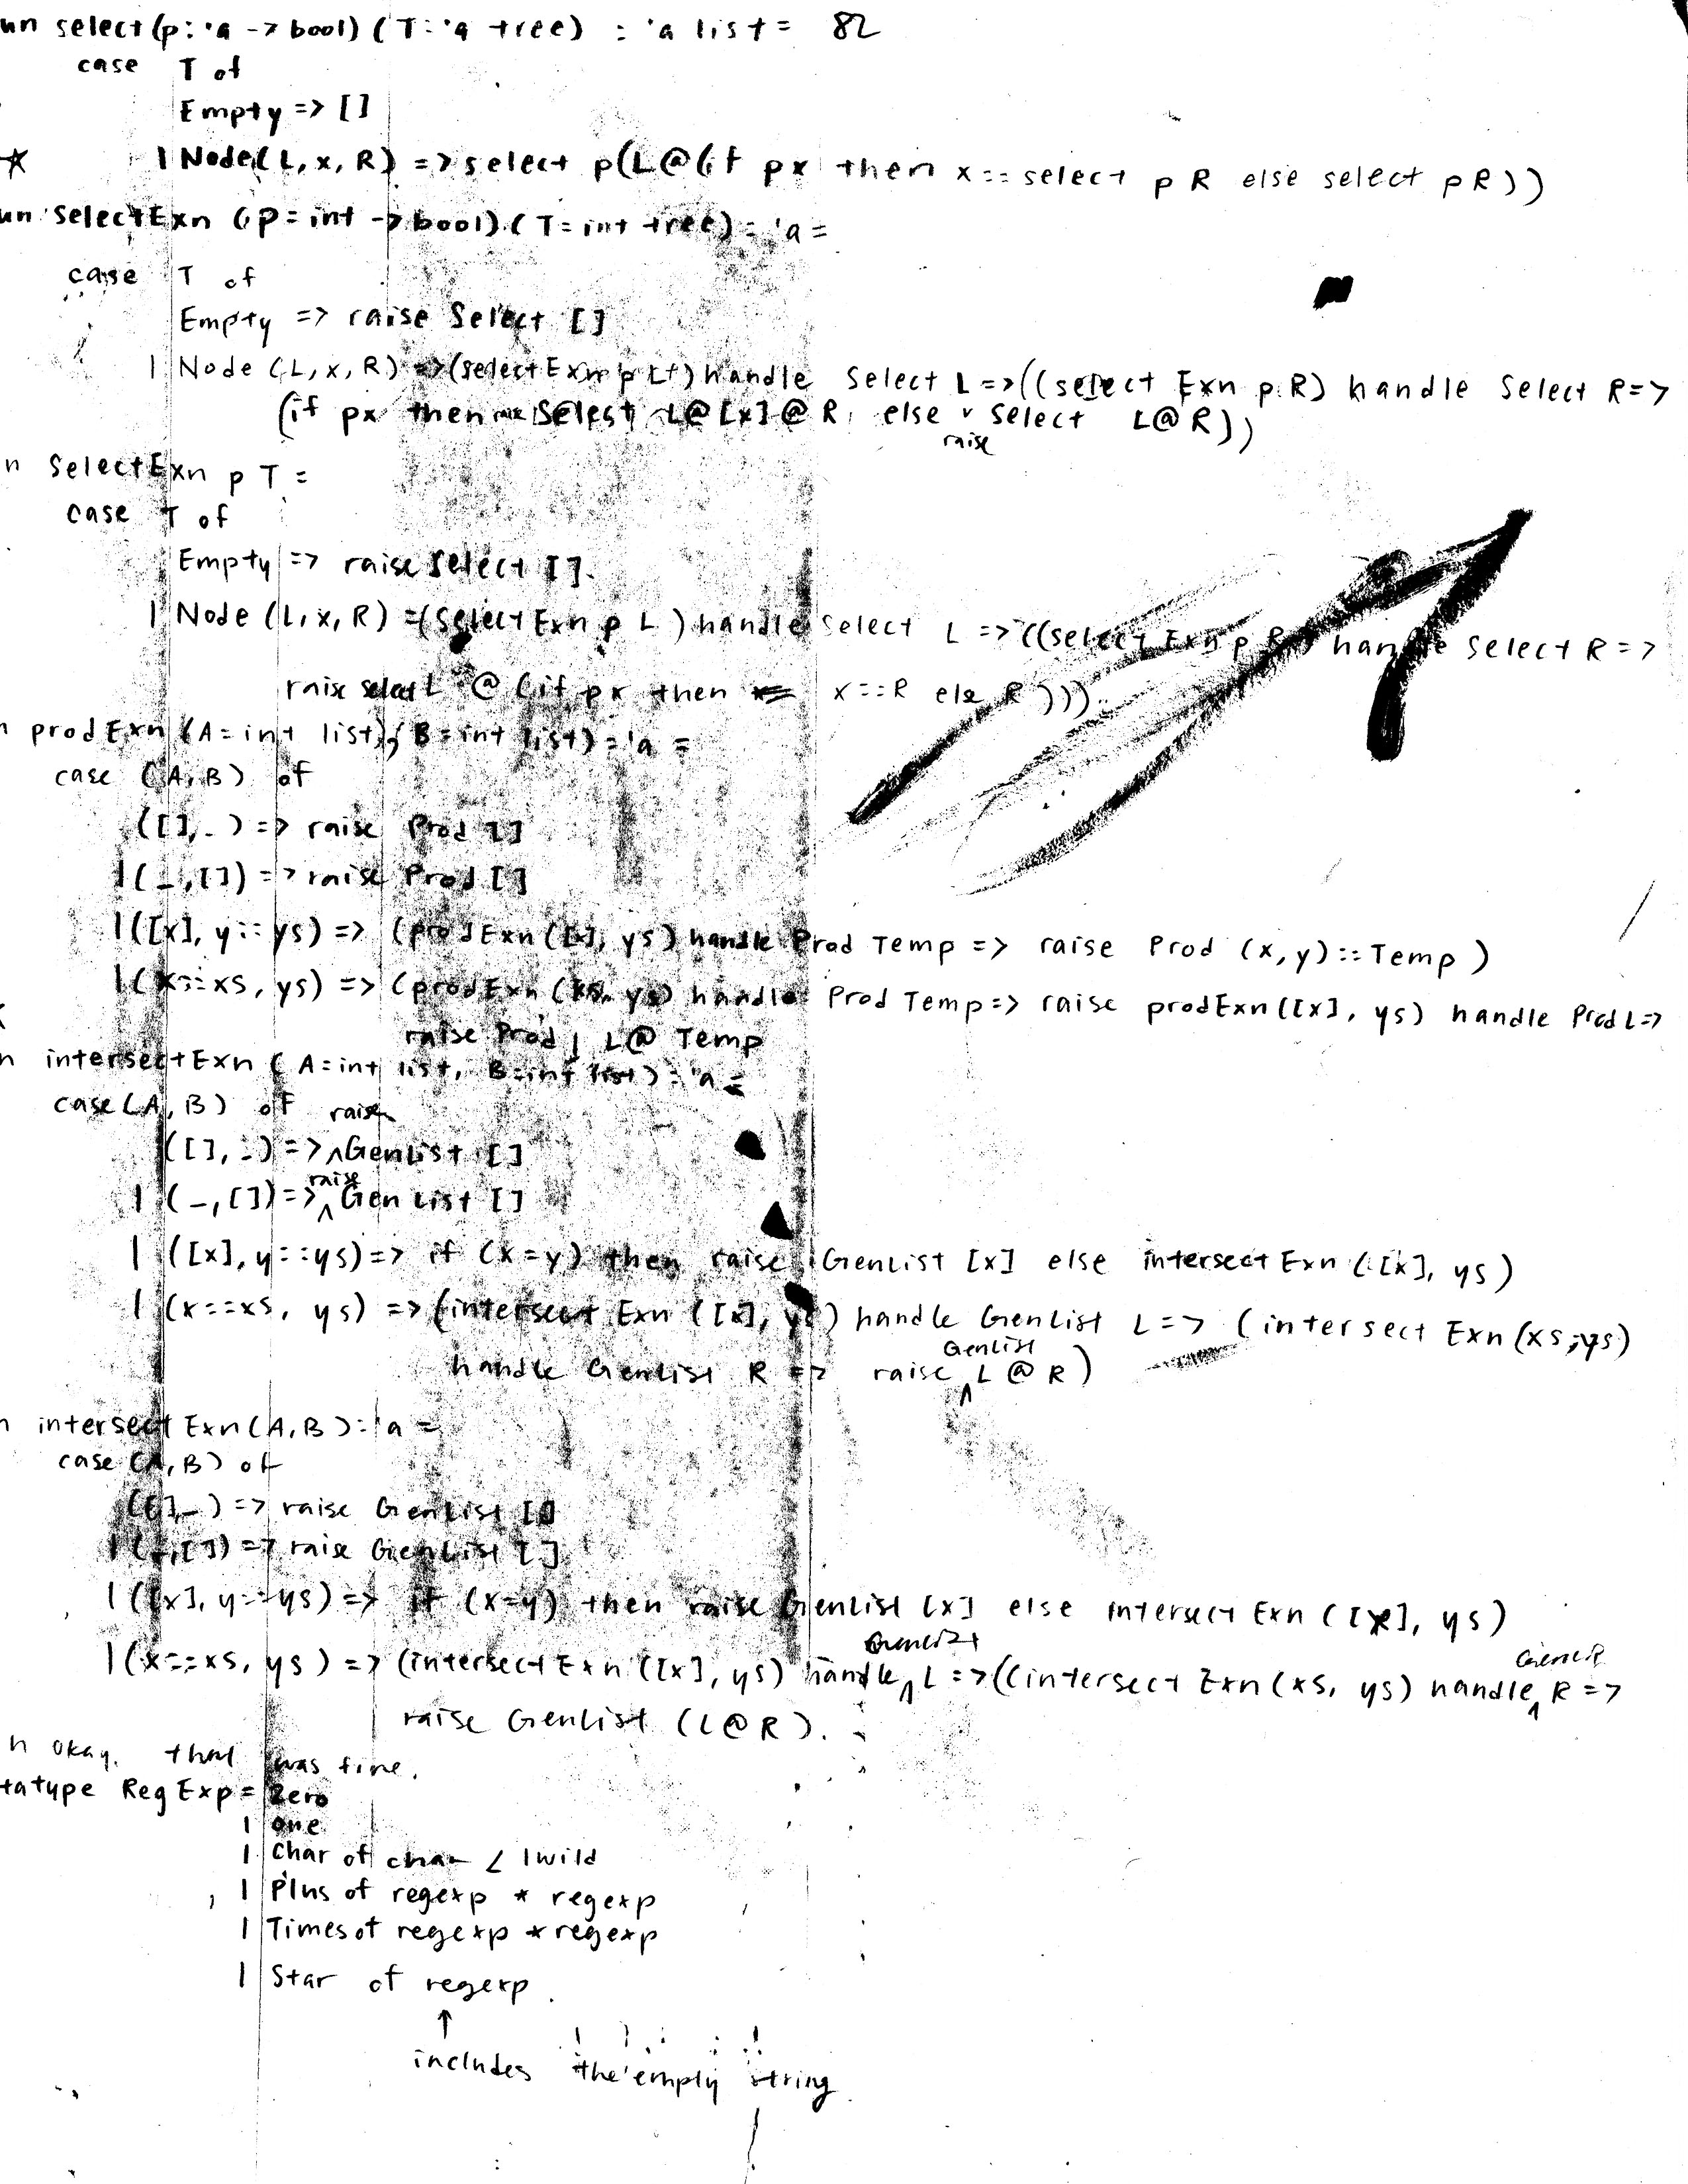 un select (p: 'a -> bool) (T: 'a tree) : 'a list = 82
case T of
Empty => []
| Node(L, x, R) => select p(L@(if px then x :: select p R else select p R))
un SelectExn (p: int -> bool) (T: int tree) : 'a =
case T of
Empty => raise Select []
| Node (L, x, R) => (selectExn p L) handle Select L => ((select Exn p R) handle Select R =>
(if px then raise Select L@[x]@R else raise Select L@R))
n SelectExn p T =
case T of
Empty => raise Select [].
| Node (L, x, R) = (Select Exn p L) handle Select L => ((select Exn p R) handle Select R =>
raise select L @ (if px then x :: R else R)))
n prodExn (A: int list, B: int list) : 'a =
case (A, B) of
([], _) => raise Prod []
| (_, []) => raise Prod []
| ([x], y::ys) => (prodExn([x], ys) handle Prod Temp => raise Prod (x, y)::Temp)
| (x::xs, ys) => (prodExn (xs, ys) handle Prod Temp => raise prodExn([x], ys) handle Prod L =>
raise Prod L@ Temp
n intersectExn (A: int list, B: int list) : 'a =
case (A, B) of
([], _) => raise GenList []
| (_, []) => raise GenList []
| ([x], y::ys) => if (x=y) then raise GenList [x] else intersectExn ([x], ys)
| (x::xs, ys) => (intersect Exn ([x], ys) handle GenList L => (intersect Exn(xs, ys)
handle GenList R => raise GenList L @ R)
n intersect Exn(A, B): 'a =
case (A, B) of
([], _) => raise GenList []
| (_, []) => raise GenList []
| ([x], y::ys) => if (x=y) then raise GenList [x] else intersect Exn ([x], ys)
| (x::xs, ys) => (intersect Exn ([x], ys) handle GenList L => ((intersect Exn(xs, ys) handle GenList R =>
raise GenList (L@R).
n okay. that was fine.
tatype RegExp = Zero
| one
| Char of char < | wild
| Plus of regexp * regexp
| Times of regexp * regexp
| Star of regexp.
↑
includes the empty string